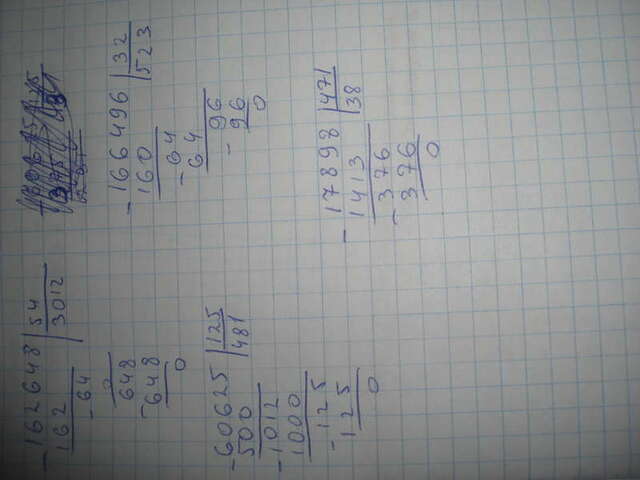 -162648 | 54
162 | 3012
-64
0
648
-648
0
-60625 | 125
500 | 481
-1012
1000
-125
125
0
-166496 | 32
160 | 523
-64
64
-96
96
0
-17898 | 471
1413 | 38
-376
376
0